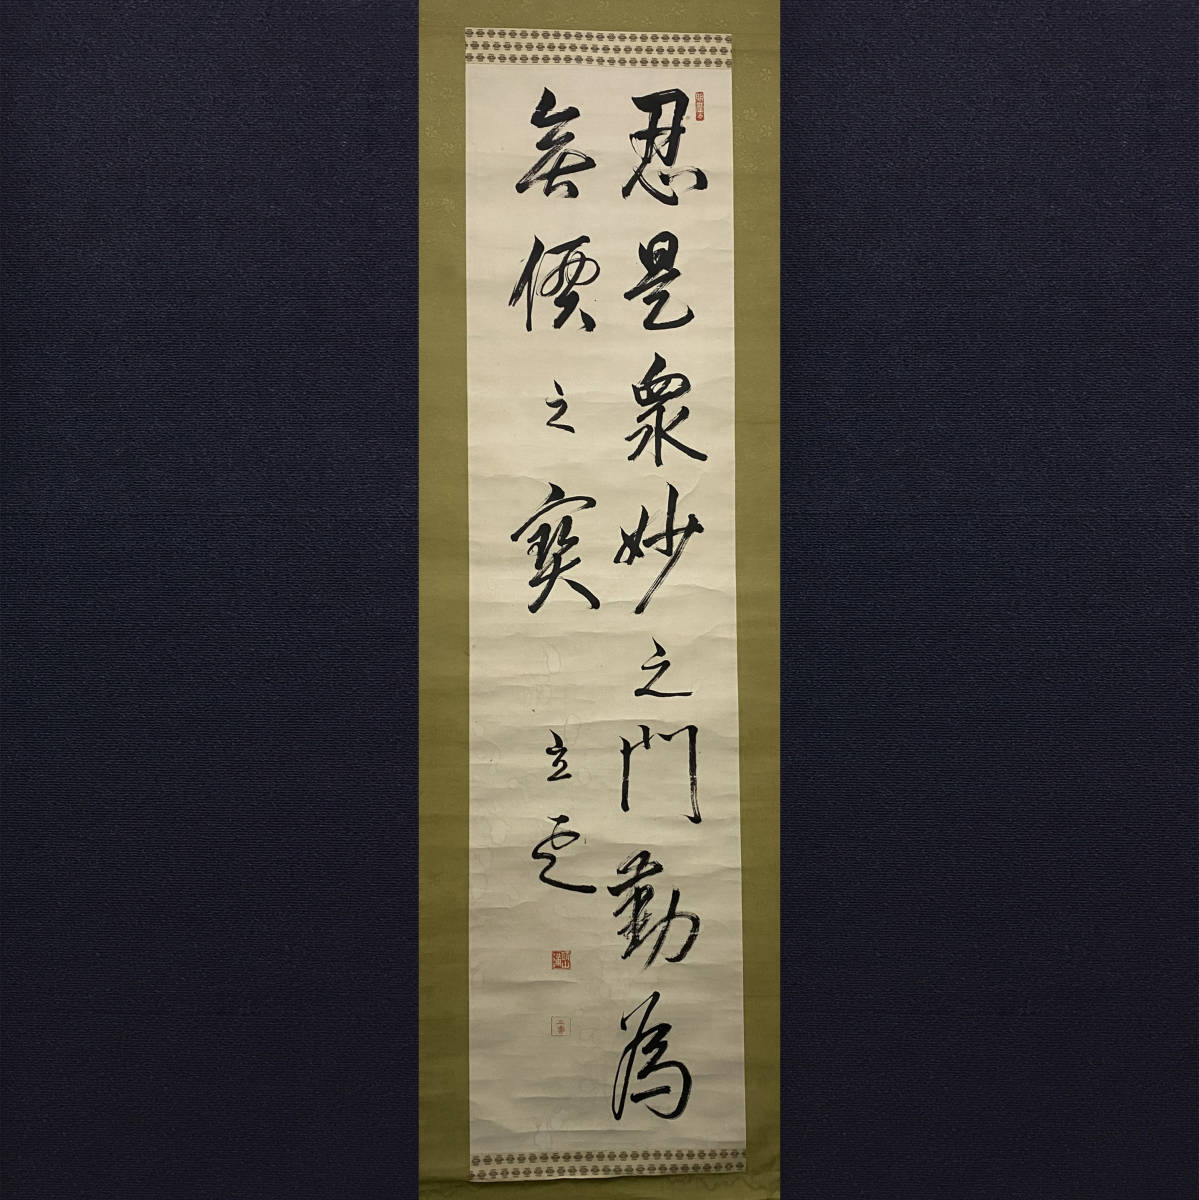 忍是衆妙之門勤為
無價之寶
立雲